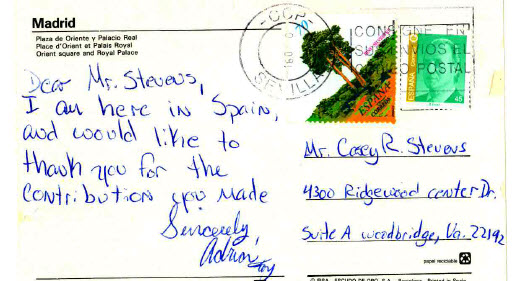 Madrid
Plaza de Oriente y Palacio Real
Place d'Orient et Palais Royal
Orient square and Royal Palace
Dear Mr. Stevens,
I am here in Spain,
and would like to
thank you for the
contribution you made
Sincerely,
CONSIGNE EN
SUS ENVIOS EL
POSTAL
SEVILLA
ESPAÑA
CORREOS
ESPAÑA
45
Mr. Casey R. Stevens
4300 Ridgewood center Dr.
Suite A woodbridge, Va. 22192
papel reciclable